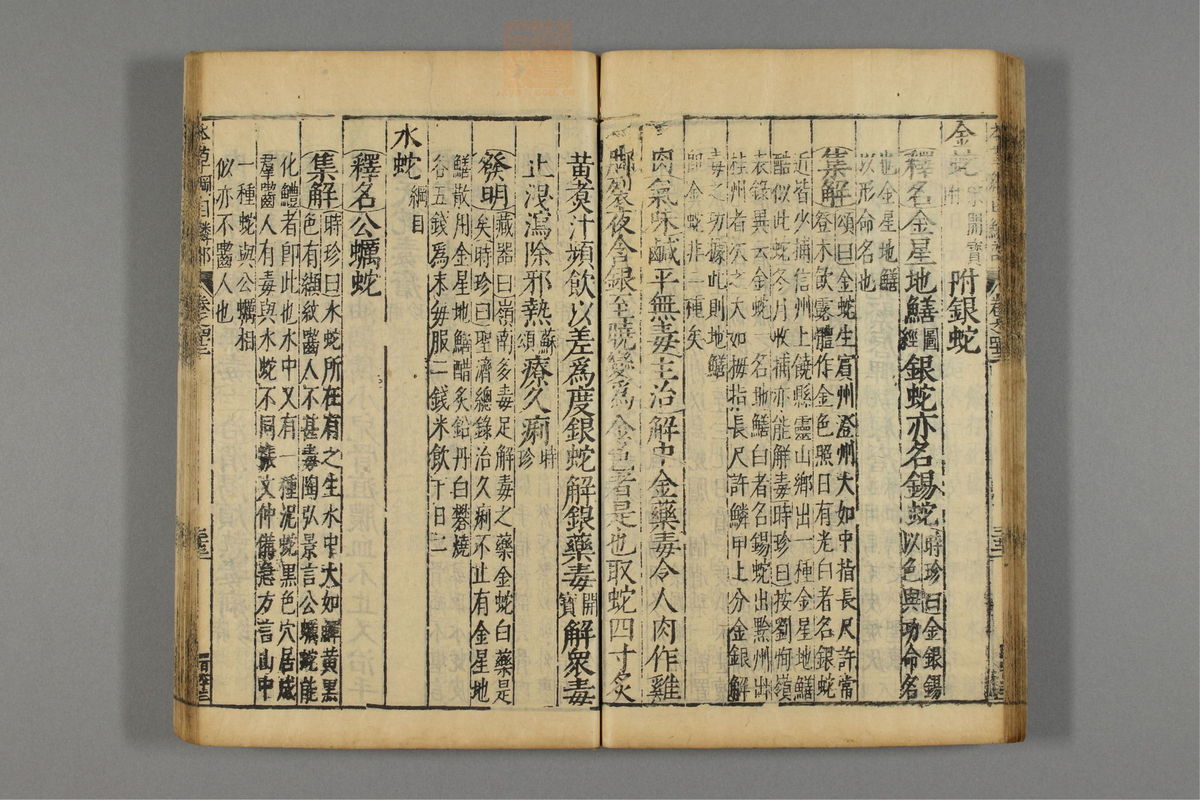 金蛇宋開寶附銀蛇
釋名金星地鱔圖經銀蛇亦名錫蛇時珍曰金銀錫以色與功命名
也金星地鱔
以形命名也
集解頌曰金蛇生賓州澄州大如中指長尺許常
登木飲露體作金色照日有光白者名銀蛇
近皆少捕信州上饒縣靈山鄉出一種金星地鱔
酷似此蛇冬月收捕亦能解毒時珍曰按劉恂嶺
表錄異云金蛇一名地鱔白者名錫蛇出黔州出
桂州者次之大如拇指長尺許鱗甲上分金銀解
毒之功據此則地鱔
即金蛇非二種矣
肉氣味鹹平無毒主治解中金藥毒令人肉作雞
夜含銀至曉變爲金色者是也取蛇四寸炙
黄煑汁頻飲以差爲度銀蛇解銀藥毒開寶解衆毒
止洩瀉除邪熱蘇頌療久痢時珍
發明藏器曰嶺南多毒足解毒之藥金蛇白藥是
矣時珍曰聖濟總錄治久痢不止有金星地
鱔散用金星地鱔醋炙鉛丹白礬燒
各五錢爲末每服二錢米飲下日二
水蛇綱目
釋名公蠣蛇
集解時珍曰水蛇所在有之生水中大如鱓黄黑
色有纈紋齧人不甚毒陶弘景言公蠣蛇能
化鱧者卽此也水中又有一種泥蛇黑色穴居成
羣齧人有毒與水蛇不同張文仲備急方言山中
一種蛇與公蠣相
似亦不齧人也
本草綱目鱗部 卷之四十三